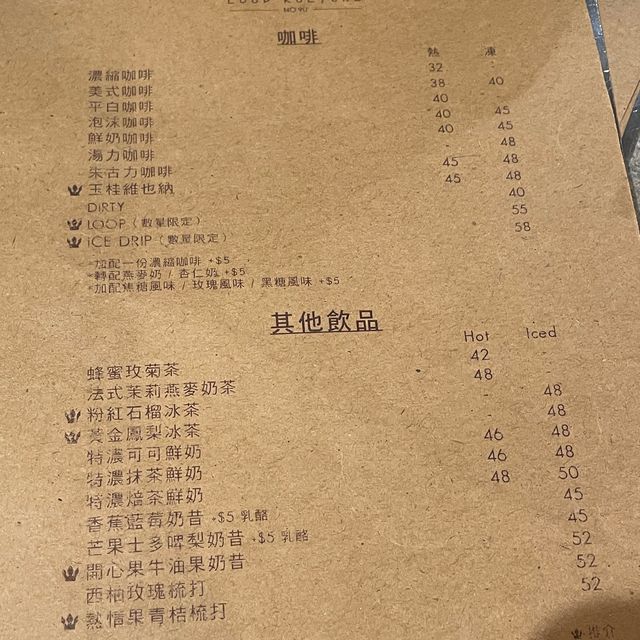 NO.90
咖啡
熱 凍
濃縮咖啡 32 -
美式咖啡 38 40
平白咖啡 40 -
泡沫咖啡 40 45
鮮奶咖啡 40 45
湯力咖啡 48
朱古力咖啡 45 48
玉桂維也納 45 48
DiRTY 40
LOOP（數量限定） 55
iCE DRIP（數量限定） 58
*加配一份濃縮咖啡 +$5
*轉配燕麥奶 / 杏仁奶 +$5
*加配焦糖風味 / 玫瑰風味 / 黑糖風味 +$5
其他飲品
Hot Iced
蜂蜜玫菊茶 42 -
法式茉莉燕麥奶茶 48 -
粉紅石榴冰茶 48
黃金鳳梨冰茶 48
特濃可可鮮奶 46 48
特濃抹茶鮮奶 46 48
特濃焙茶鮮奶 48 50
香蕉藍莓奶昔 +$5 乳酪 45
芒果士多啤梨奶昔 +$5 乳酪 45
開心果牛油果奶昔 52
西柚玫瑰梳打 52
熱情果青桔梳打 52
推介